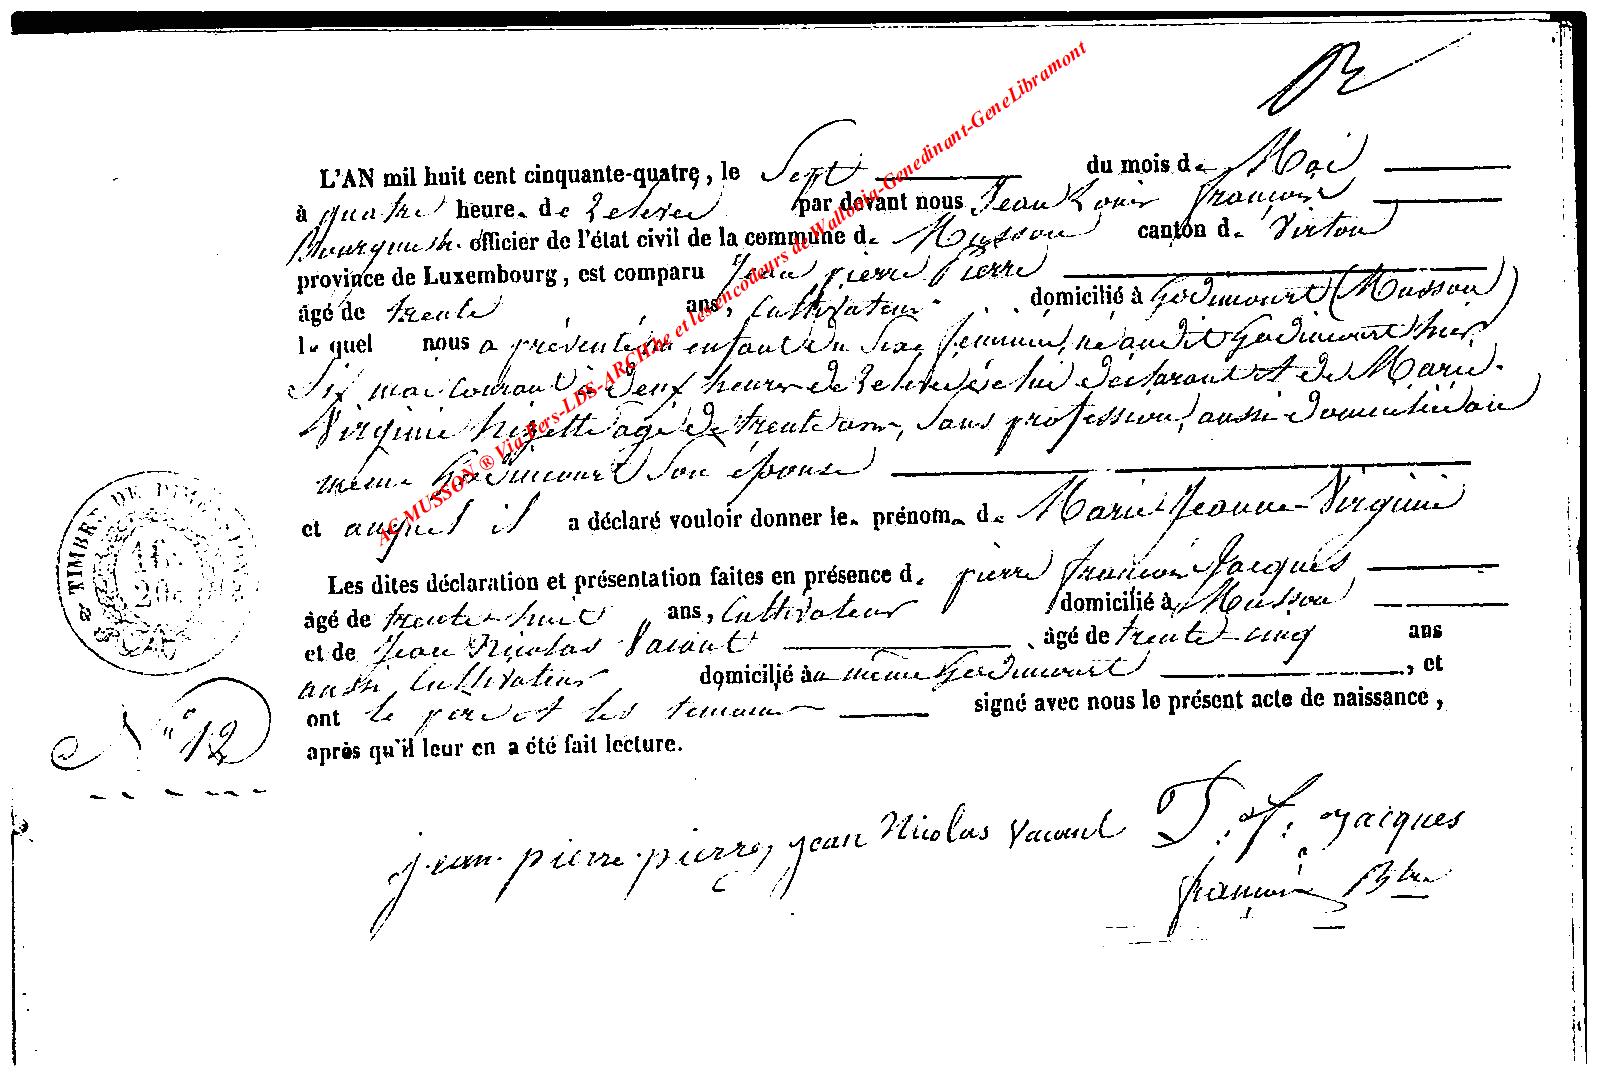 L'AN mil huit cent cinquante-quatre, le Sept du mois de Mai
à quatre heures de relevée par devant nous Jean Louis françois
Bourgmestre officier de l'état civil de la commune de Musson canton de Virton
province de Luxembourg, est comparu Jean pierre Pierre
âgé de trente ans, Cultivateur domicilié à Godincourt (Musson)
lequel nous a présenté un enfant du Sexe féminin, né audit Godincourt hier
Six mai courant à deux heures de relevée de lui déclarant et de Marie
Virginie agé de trente ans, sans profession, aussi domiciliée au
même Godincourt Son épouse
et auquel il a déclaré vouloir donner les prénoms de Marie Jeanne Virginie
Les dites déclaration et présentation faites en présence de pierre françois Jacques
âgé de trente-huit ans, Cultivateur domicilié à Musson
et de Jean Nicolas Vacant âgé de trente cinq ans
aussi Cultivateur domicilié au même Godincourt, et
ont le père et les témoins signé avec nous le présent acte de naissance,
après qu'il leur en a été fait lecture.
TIMBRE DE DIMENSION
N° 12
jean pierre pierre jean Nicolas Vacant P. f. jacques
françois Btre
AC MUSSON ® Via Pers-LDS-ARCHive et les encodeurs de Wallonia-Genedinant-GeneLibramont